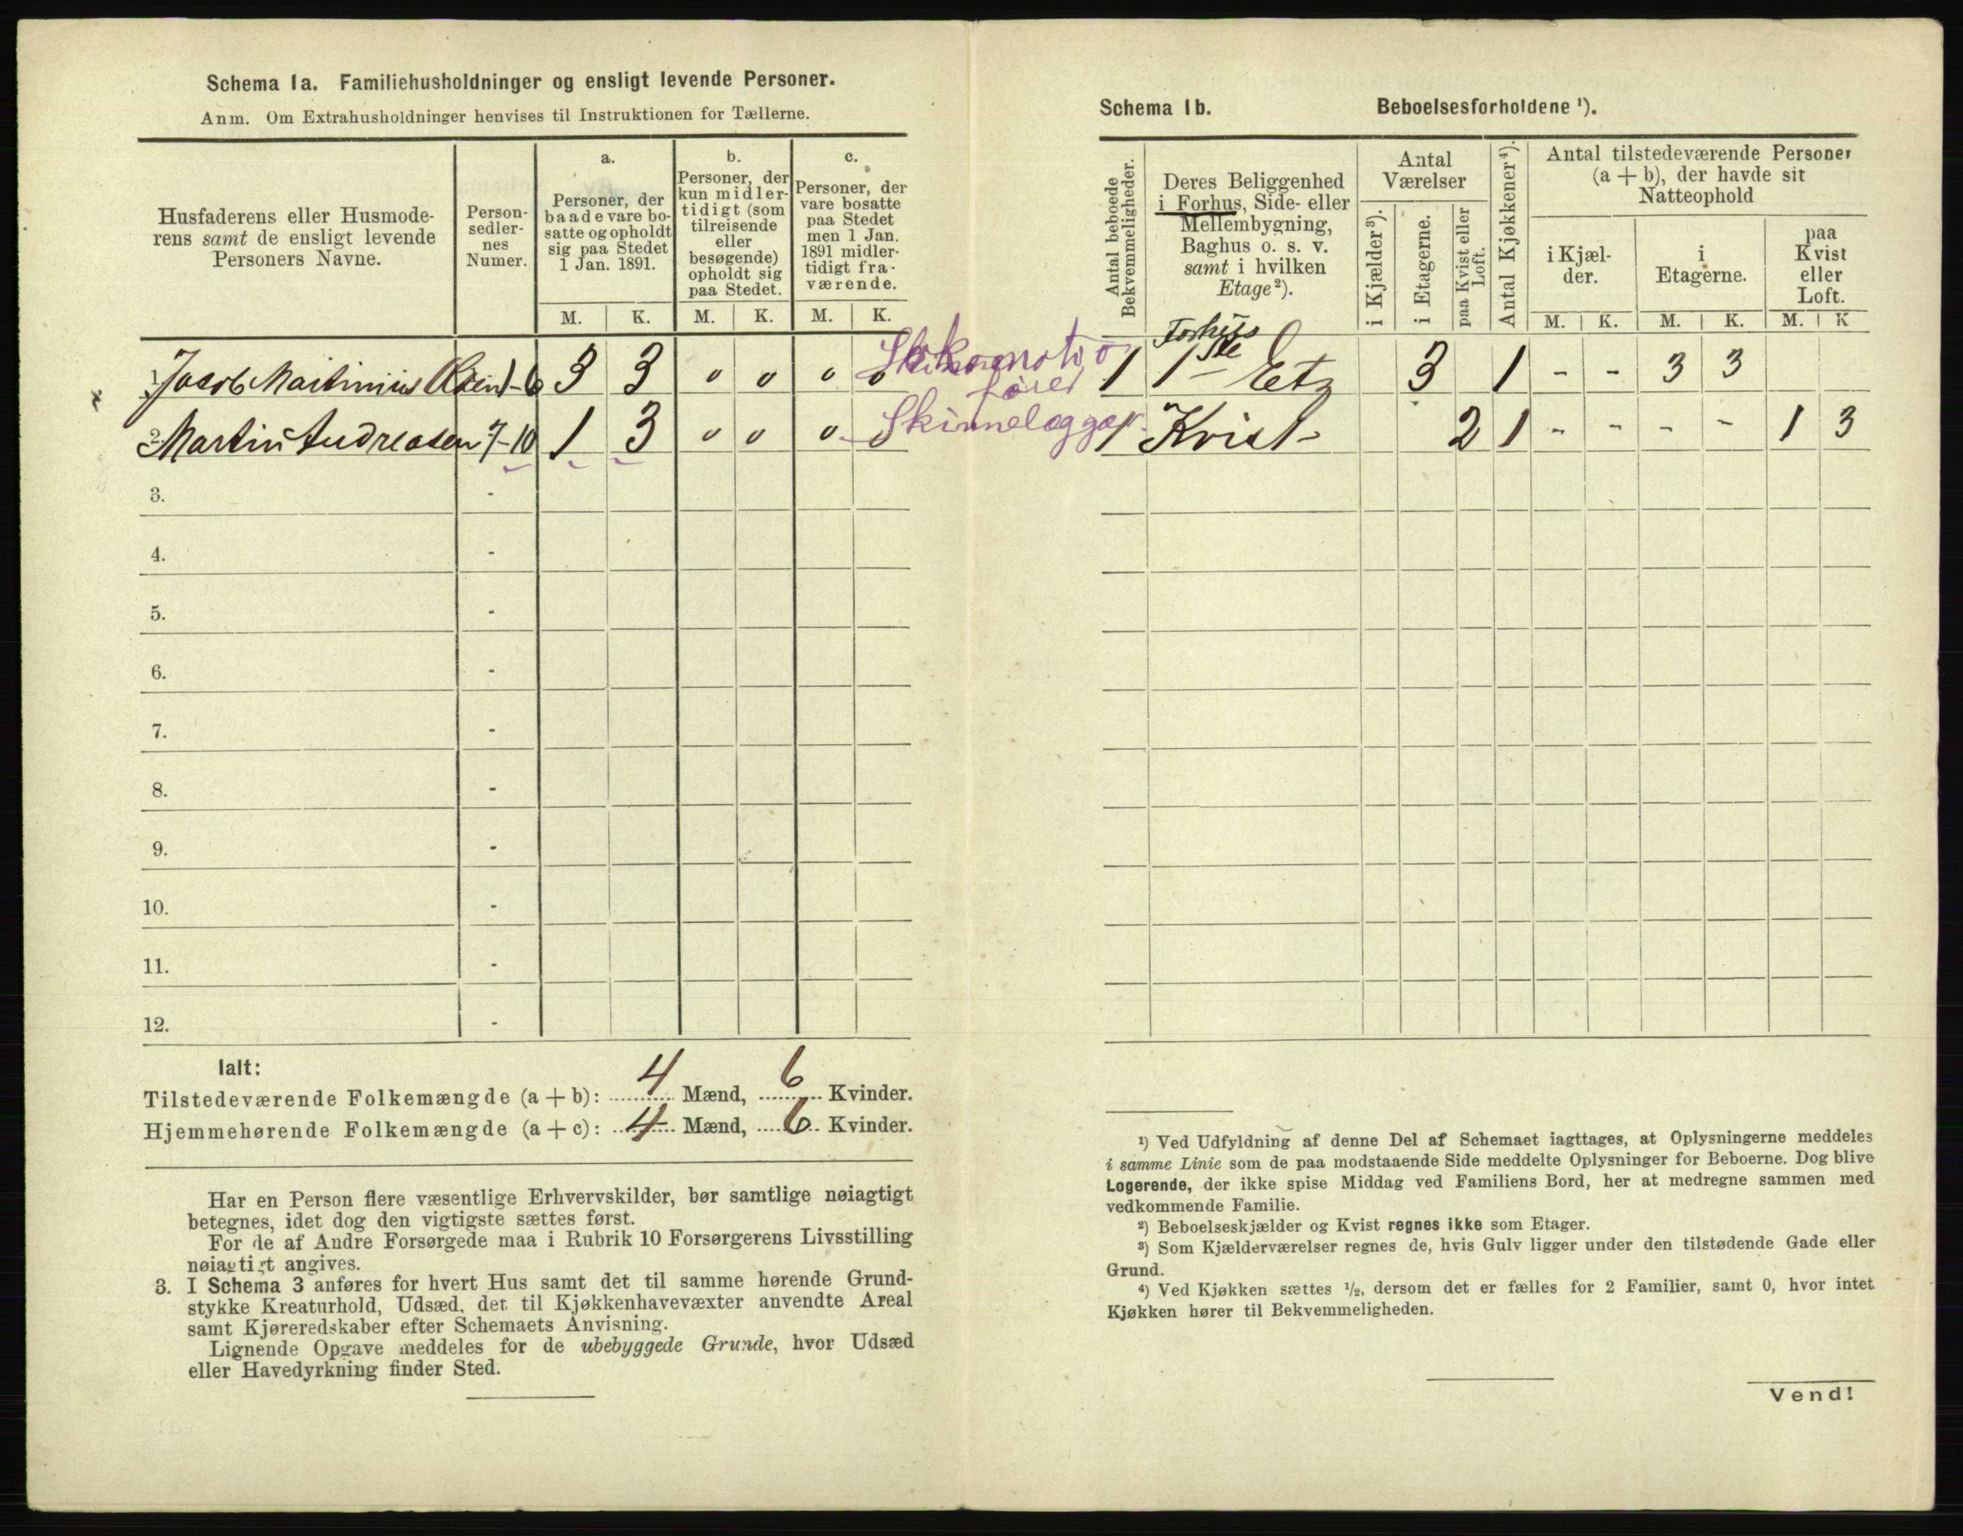 Schema 1a. Familiehusholdninger og ensligt levende Personer.
Anm. Om Extrahusholdninger henvises til Instruktionen for Tællerne.
Husfaderens eller Husmode-
rens samt de ensligt levende
Personers Navne.
Person-
sedler-
nes
Numer.
a.
Personer, der
baade vare bo-
satte og opholdt
sig paa Stedet
1 Jan. 1891.
b.
Personer, der
kun midler-
tidigt (som
tilreisende
eller
besøgende)
opholdt sig
paa Stedet.
c.
Personer, der
vare bosatte
paa Stedet
men 1 Jan.
1891 midler-
tidigt fra-
værende.
M. K. M. K. M. K.
1. Jacob Martinius Olsen 1-6 3 3 0 0 0 0
fører
2. Martin Andreasen 7-10 1 3 0 0 0 0 Skinnelægger
3. -
4. -
5. -
6. -
7. -
8. -
9. -
10. -
11. -
12. -
Ialt:
Tilstedeværende Folkemængde (a + b): 4 Mænd, 6 Kvinder.
Hjemmehørende Folkemængde (a + c): 4 Mænd, 6 Kvinder.
Har en Person flere væsentlige Erhvervskilder, bør samtlige nøiagtigt
betegnes, idet dog den vigtigste sættes først.
For de af Andre Forsørgede maa i Rubrik 10 Forsørgerens Livsstilling
nøiagtigt angives.
3. I Schema 3 anføres for hvert Hus samt det til samme hørende Grund-
stykke Kreaturhold, Udsæd, det til Kjøkkenhavevæxter anvendte Areal
samt Kjøreredskaber efter Schemaets Anvisning.
Lignende Opgave meddeles for de ubebyggede Grunde, hvor Udsæd
eller Havedyrkning finder Sted.
Schema 1b. Beboelsesforholdene ¹).
Antal beboede
Bekvemmeligheder.
Deres Beliggenhed
i Forhus, Side- eller
Mellembygning,
Baghus o. s. v.
samt i hvilken
Etage²).
Antal
Værelser
i Kjælder³).
i Etagerne.
paa Kvist eller
Loft.
Antal Kjøkkener⁴).
Antal tilstedeværende Personer
(a + b), der havde sit
Natteophold
i Kjæl-
der.
i
Etagerne.
paa
Kvist
eller
Loft.
M. K. M. K. M. K
Forhus
1 1ste Etg 3 1 - - 3 3
1 Kvist - 2 1 - - - - 1 3
¹) Ved Udfyldning af denne Del af Schemaet iagttages, at Oplysningerne meddeles
i samme Linie som de paa modstaaende Side meddelte Oplysninger for Beboerne. Dog blive
Logerende, der ikke spise Middag ved Familiens Bord, her at medregne sammen med
vedkommende Familie.
²) Beboelseskjælder og Kvist regnes ikke som Etager.
³) Som Kjælderværelser regnes de, hvis Gulv ligger under den tilstødende Gade eller
Grund.
⁴) Ved Kjøkken sættes ½, dersom det er fælles for 2 Familier, samt 0, hvor intet
Kjøkken hører til Bekvemmeligheden.
Vend!